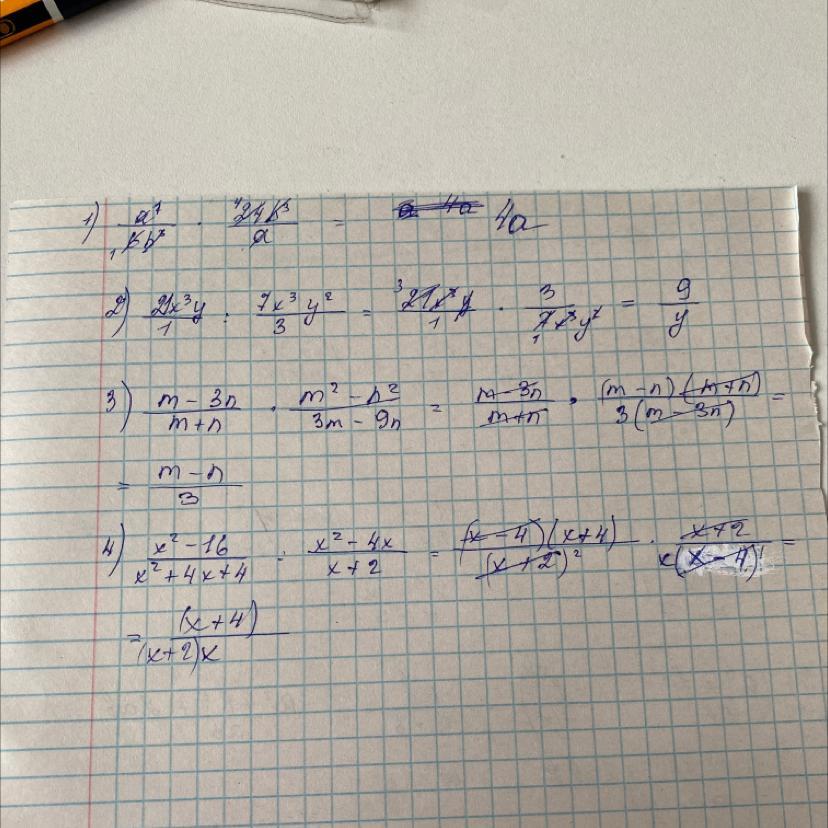 1) a²/6b³ · 24b³/a = 4a
2) 21x³y/1 : 7x³y²/3 = 21x³y/1 · 3/7x³y² = 9/y
3) m-3n/m+n · m²-n²/3m-9n = m-3n/m+n · (m-n)(m+n)/3(m-3n) =
= m-n/3
4) x²-16/x²+4x+4 : x²-4x/x+2 = (x-4)(x+4)/(x+2)² · x+2/x(x-4) =
= (x+4)/(x+2)x